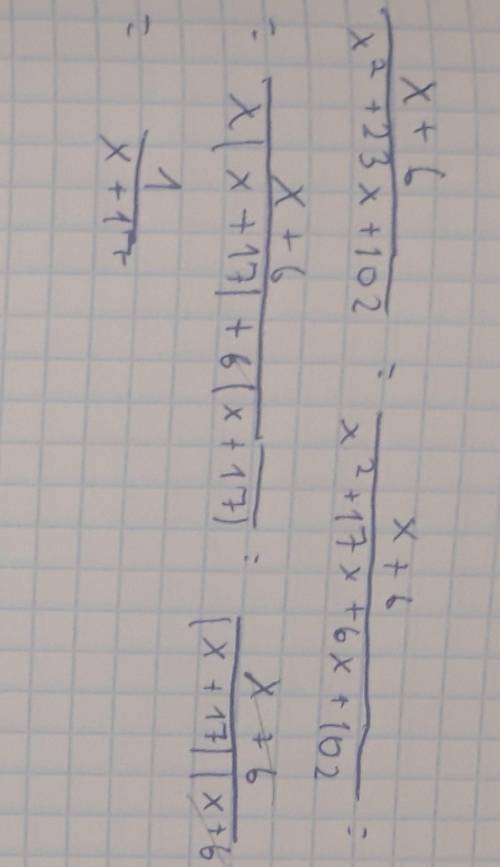 x + 6 / x² + 23x + 102 = x + 6 / x² + 17x + 6x + 102 =
= x + 6 / x(x + 17) + 6(x + 17) = x + 6 / (x + 17)(x + 6
= 1 / x + 17